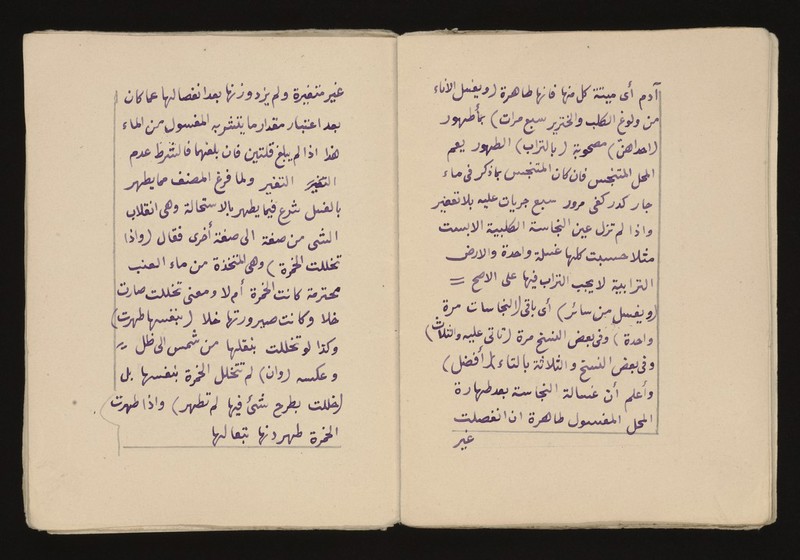 آدم أى ميتة كل منها فانها طاهرة (ويغسل الأناء
من ولوغ الكلب والخنزير سبع مرات) بمأطهور
(احداهن) مصحوبة (بالتراب) الطهور يعم
المحل المتنجس فان كان المتنجس بماذكر فى ماء
جار كدر كفى مرور سبع جريات عليه بلا تعفير
واذا لم تزل عين النجاسة الكلبية الابست
مثلا حسبت كلها غسلة واحدة والارض
الترابية لايجب التراب فيها على الاصح =
(ويغسل من سائر) أى باقى (النجاسات مرة
واحدة) وفى بعض النسخ مرة (تاتى عليه والثلاث)
وفى بعض النسخ والثلاثة بالتاء (أفضل)
وأعلم أن غسالة النجاسة بعد طهارة
المحل المغسول طاهرة ان انفصلت
غير
غير متغيرة ولم يزد وزنها بعد انفصالها عما كان
بعد اعتبار مقدار ما يتشربه المغسول من الماء
هذا اذا لم يبلغ قلتين فان بلغهما فالشرط عدم
التغير ولما فرغ المصنف مما يطهر
بالغسل شرع فيما يطهر بالاستحالة وهى انقلاب
الشى من صفة الى صفة أخرى فقال (واذا
تخللت الخمرة) وهى المتخذة من ماء العنب
محترمة كانت الخمرة أم لا ومعنى تخللت صارت
خلا وكانت صيرورتها خلا (بنفسها طهرت)
وكذا لو تخللت بنقلها من شمس الى ظل =
وعكسه (وان) لم تتخلل الخمرة بنفسها بل
(خللت بطرح شئ فيها لم تطهر) واذا طهرت
الخمرة طهر دنها تبعا لها